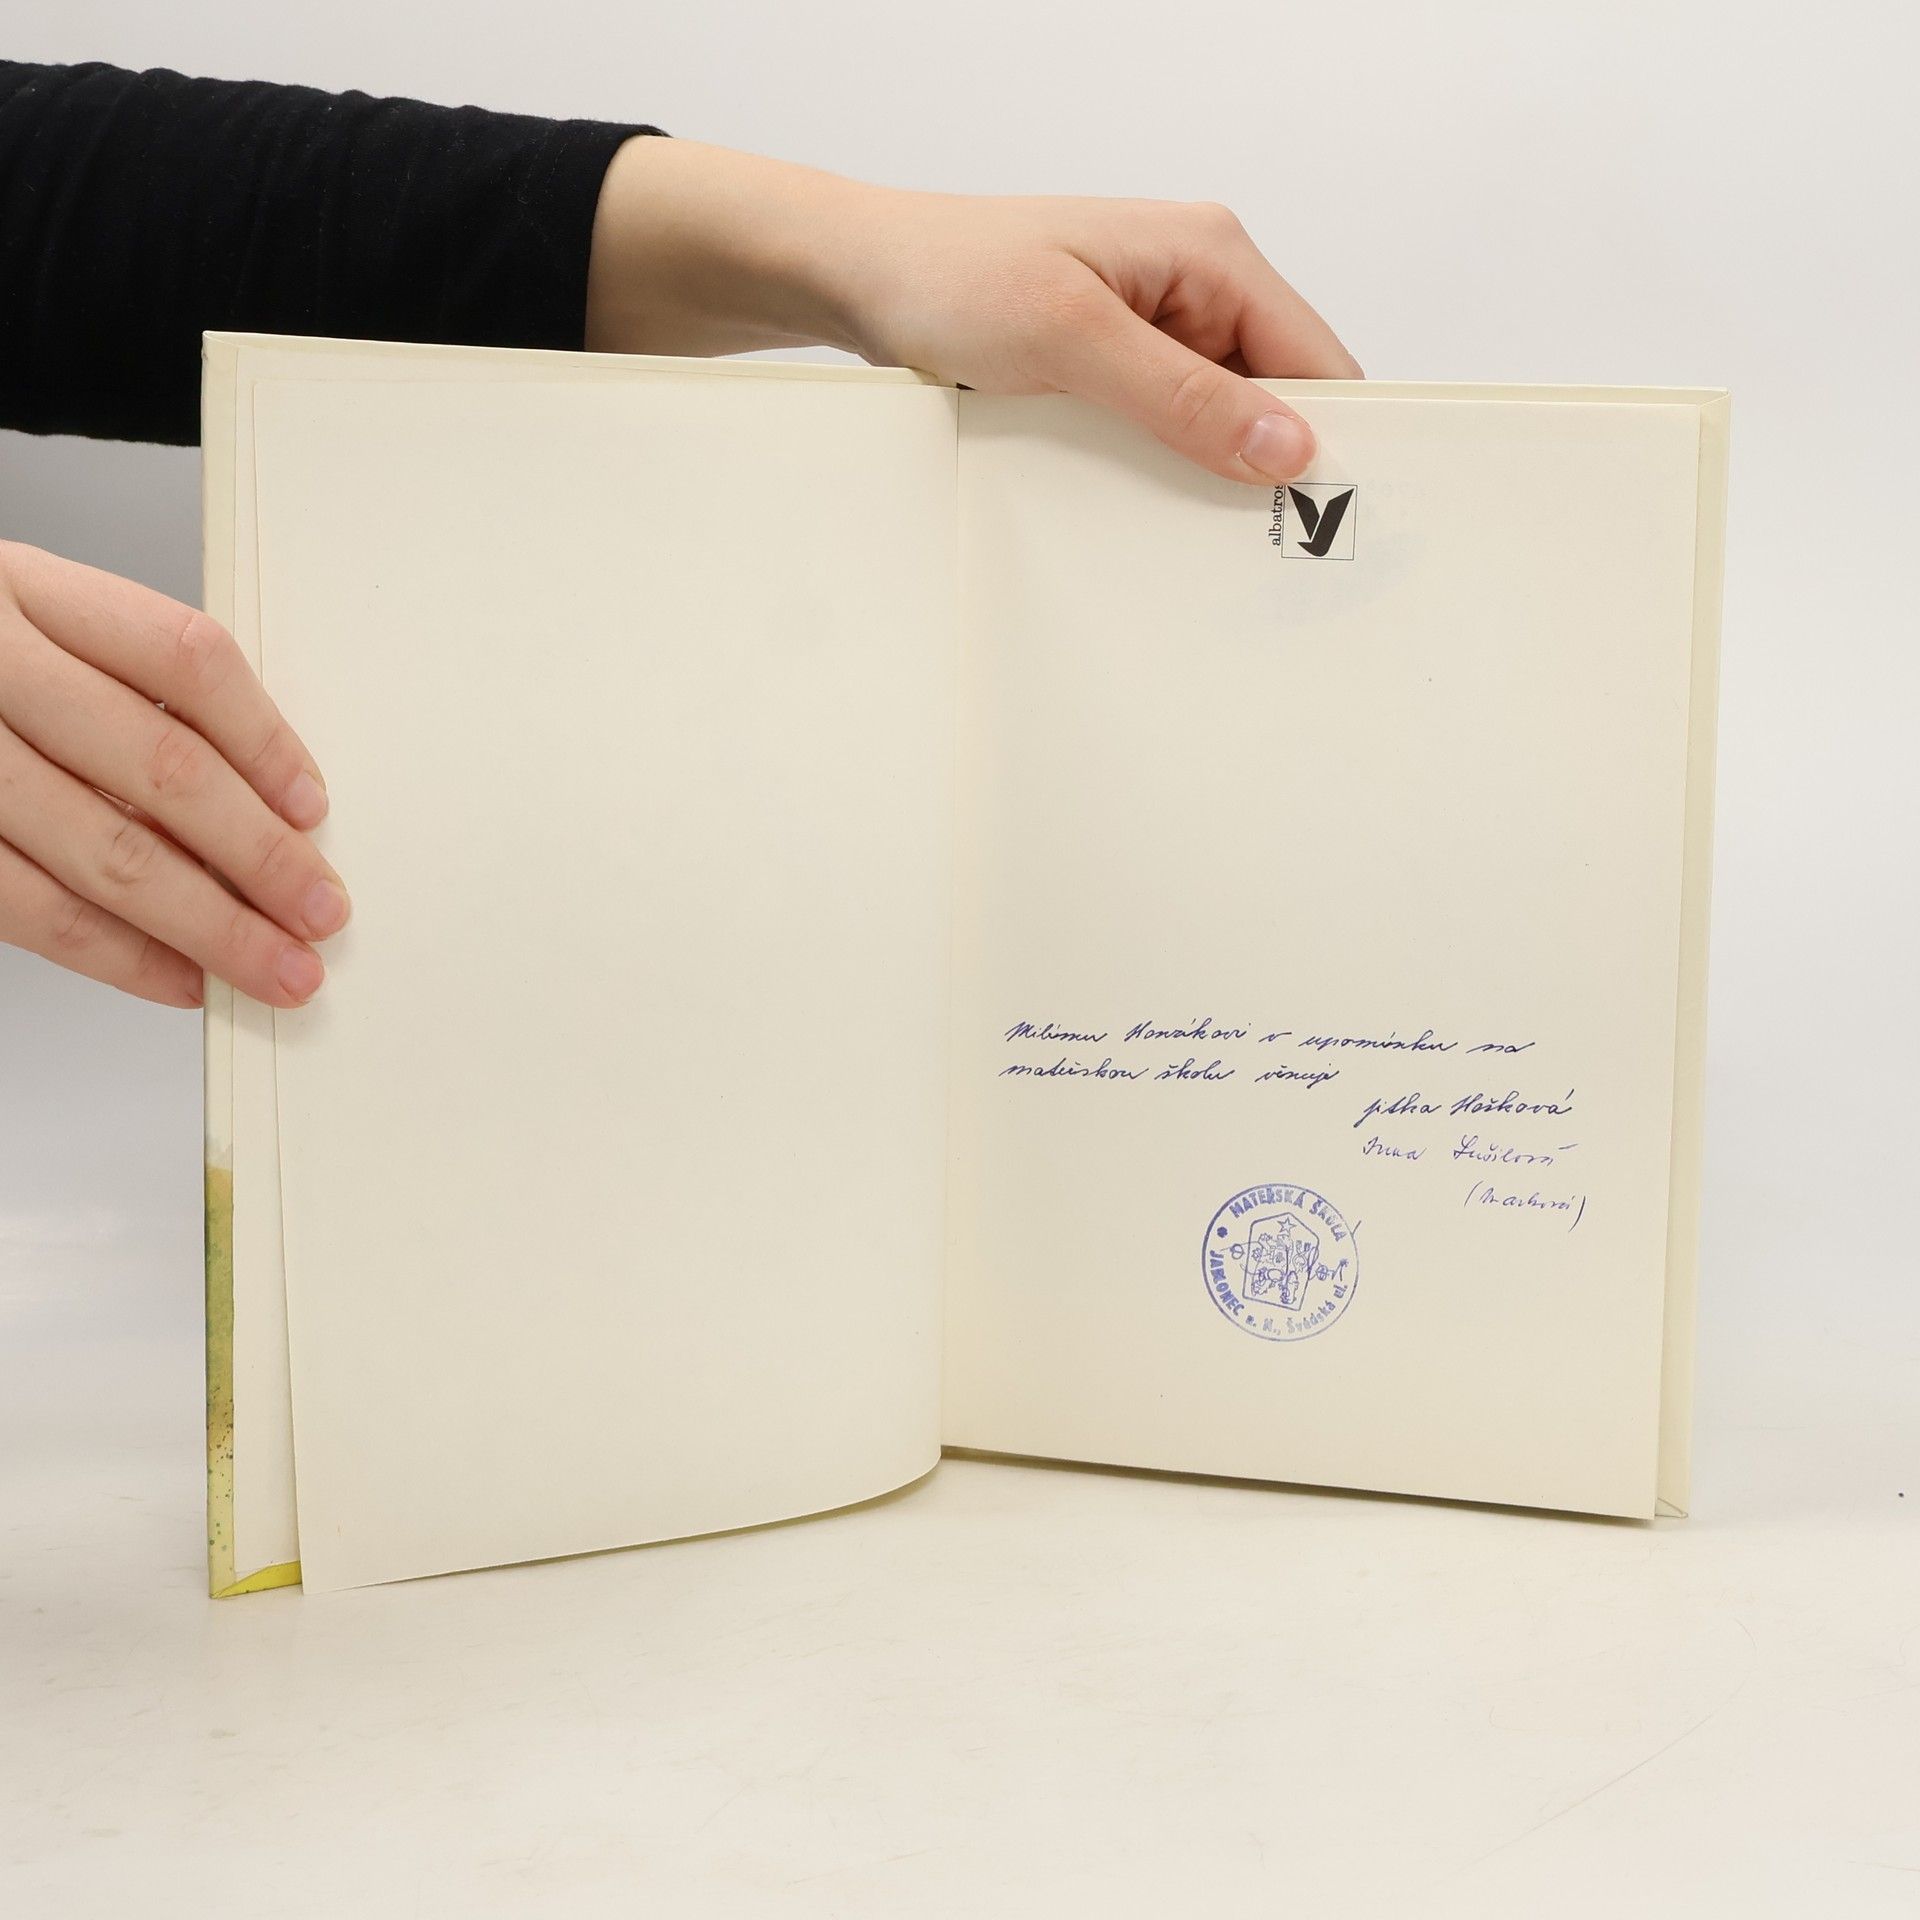 albatros
Milému Honzíkovi v upomínku na
mateřskou školu věnuje
Jitka Hošková
Irena Sušilová
MATEŘSKÁ ŠKOLA
JABLONEC n. N., Švédská ul.